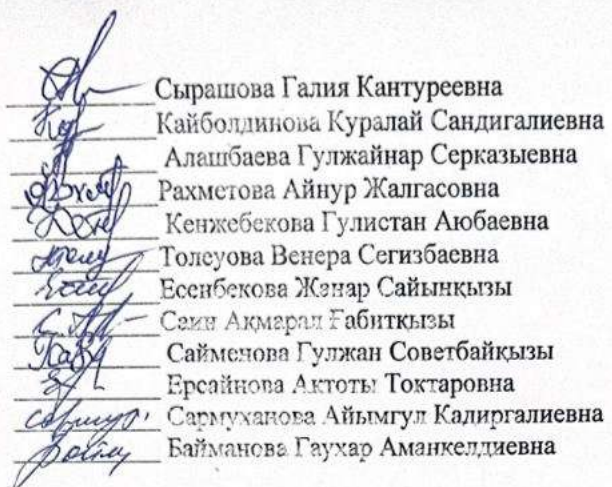 Сырашова Галия Кантуреевна
Кайболдинова Куралай Сандигалиевна
Алашбаева Гулжайнар Серказыевна
Рахметова Айнур Жалгасовна
Кенжебекова Гулистан Аюбаевна
Толеуова Венера Сегизбаевна
Есенбекова Жанар Сайынқызы
Саин Ақмарал Ғабитқызы
Сайменова Гулжан Советбайқызы
Ерсайнова Актоты Токтаровна
Сармуханова Айымгул Кадиргалиевна
Байманова Гаухар Аманкелдиевна